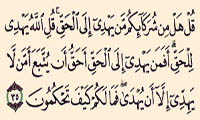 قُلْ هَلْ مِن شُرَكَآئِكُم مَّن يَهْدِىٓ إِلَى ٱلْحَقِّ ۚ قُلِ ٱللَّهُ يَهْدِى
لِلْحَقِّ ۗ أَفَمَن يَهْدِىٓ إِلَى ٱلْحَقِّ أَحَقُّ أَن يُتَّبَعَ أَمَّن لَّا
يَهِدِّىٓ إِلَّآ أَن يُهْدَىٰ ۖ فَمَا لَكُمْ كَيْفَ تَحْكُمُونَ ٣٥